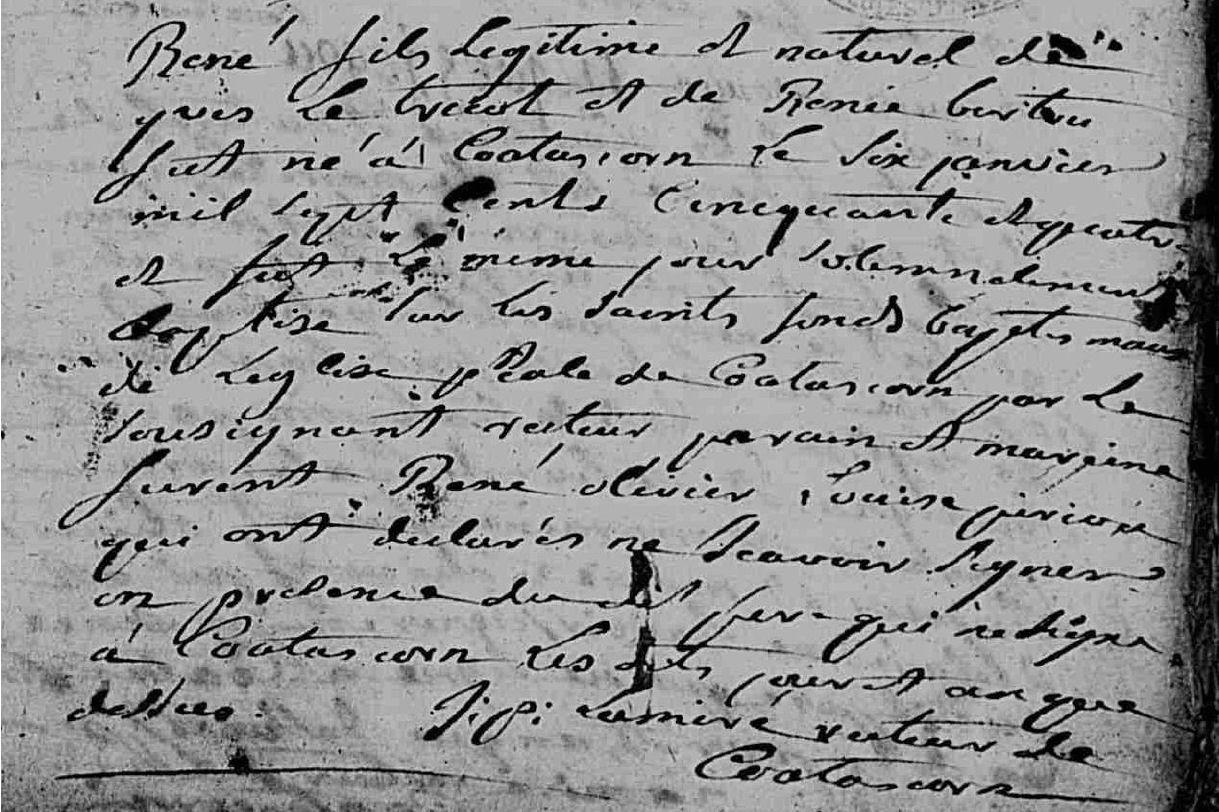 René fils legitime et naturel de
yves Le treut et de Renée bertru
fut né à Coatascorn Le six janvier
mil sept Cents Cincquante et quatre
et fut Le même jour solemnelement
Baptisé sur les saints fonds baptismaux
de Leglise pRale de Coatascorn par Le
sousignant recteur parain et mareine
furent René olivier, Louise
qui ont declarés ne scavoir signer
en presence du dit pere qui ne signe
à Coatascorn Les dits jour et an que
dessus. recteur de
Coatascorn